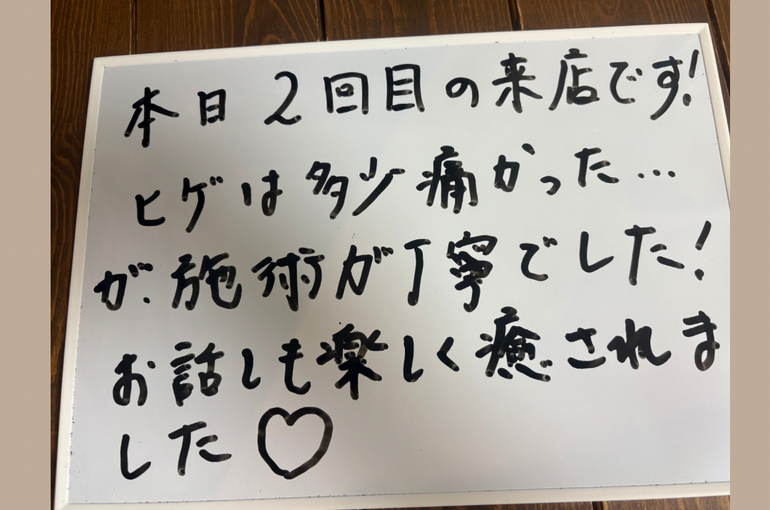 本日2回目の来店です!
ヒゲは多少痛かった…
が、施術が丁寧でした!
お話しも楽しく癒されま
した♡